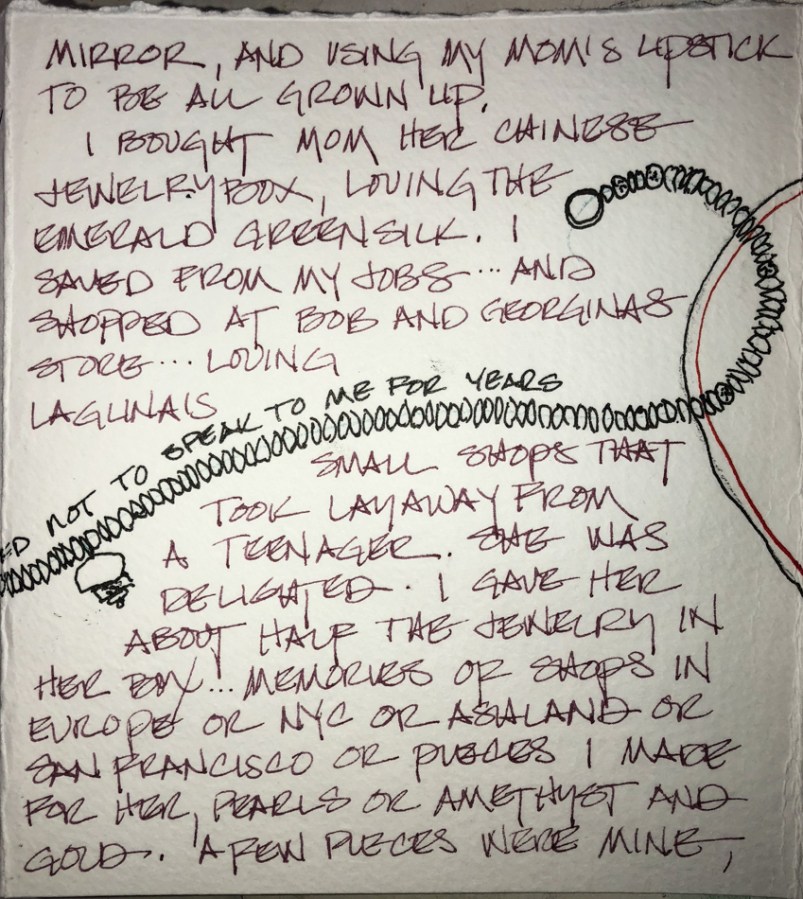 MIRROR, AND USING MY MOM'S LIPSTICK
TO BE ALL GROWN UP.
I BOUGHT MOM HER CHINESE
JEWELRY BOX, LOVING THE
EMERALD GREEN SILK. I
SAVED FROM MY JOBS... AND
SHOPPED AT BOB AND GEORGINAS
STORE... LOVING
LAGUNA'S
ED NOT TO SPEAK TO ME FOR YEARS
SMALL SHOPS THAT
TOOK LAYAWAY FROM
A TEENAGER. SHE WAS
DELIGHTED. I GAVE HER
ABOUT HALF THE JEWELRY IN
HER BOX... MEMORIES OF SHOPS IN
EUROPE OR NYC OR ASHLAND OR
SAN FRANCISCO OR PIECES I MADE
FOR HER, PEARLS OR AMETHYST AND
GOLD. A FEW PIECES WERE MINE,